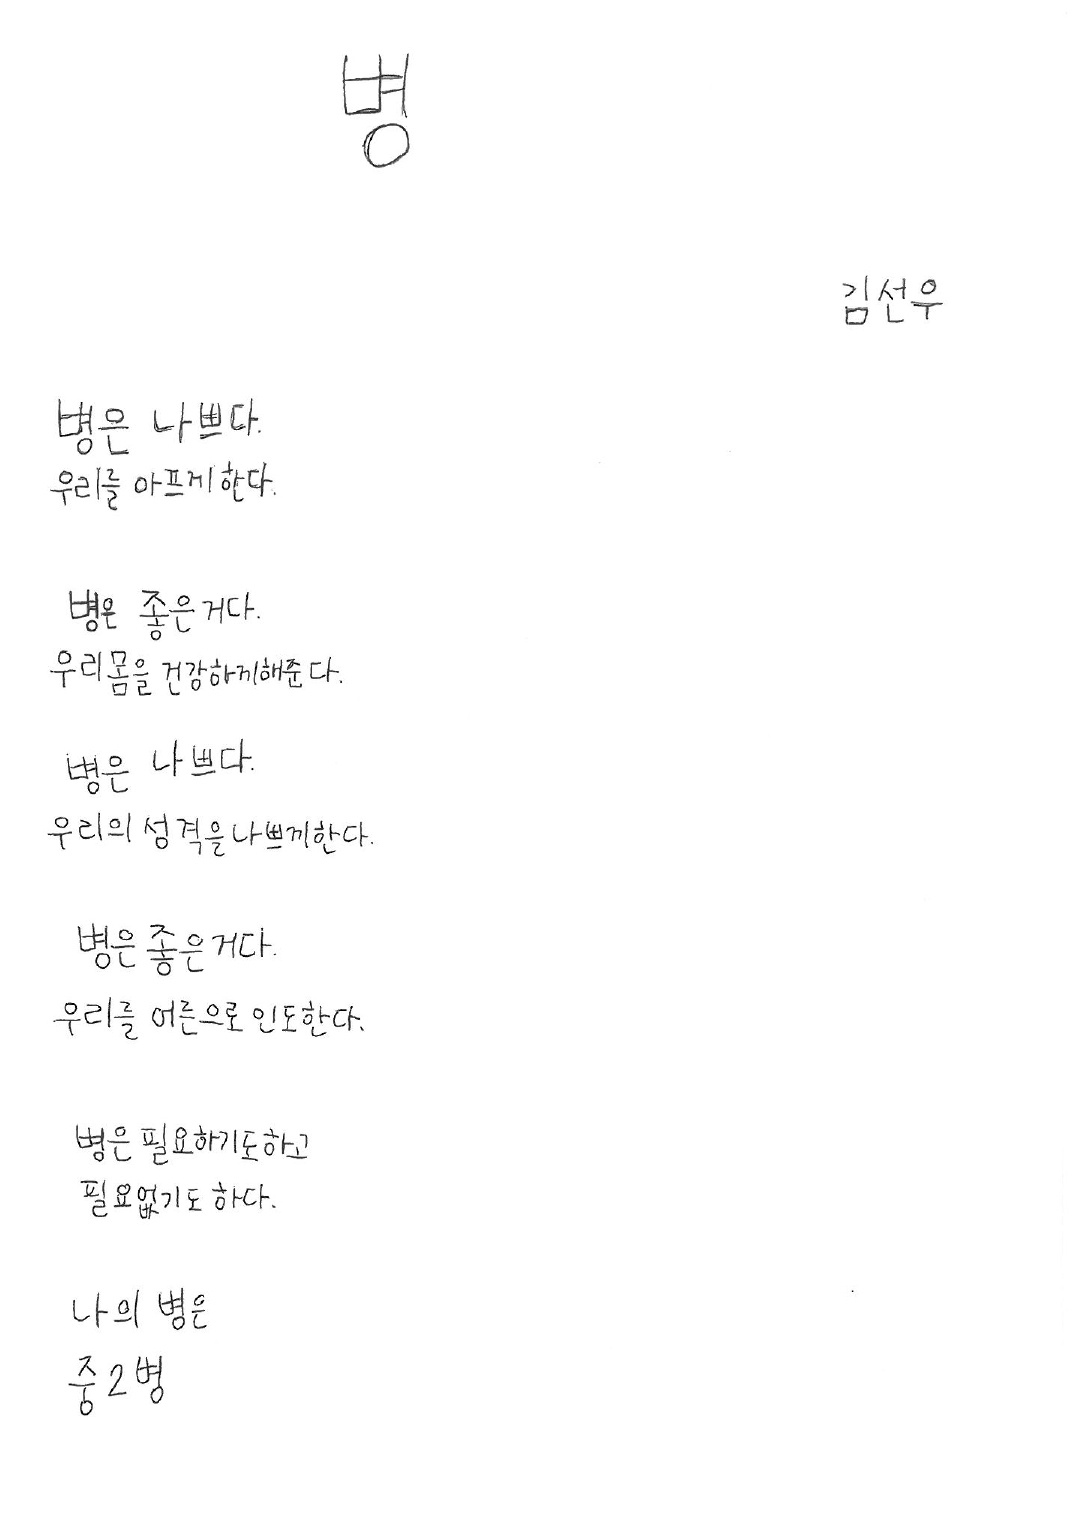 병
김선우
병은 나쁘다.
우리를 아프게 한다.
병은 좋은거다.
우리몸을 건강하게해준다.
병은 나쁘다.
우리의 성격을나쁘게한다.
병은 좋은거다.
우리를 어른으로 인도한다.
병은 필요하기도하고
필요없기도 하다.
나의 병은
중2병